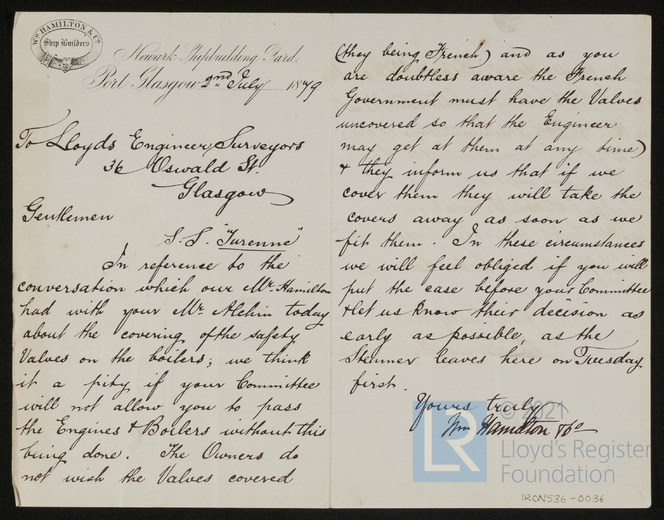 Wm HAMILTON & Co
Ship Builders
Newark Shipbuilding Yard,
Port Glasgow 2nd July 1879
To Lloyds Engineer Surveyors
36 Oswald St.
Glasgow
Gentlemen
S.S. "Turenne"
In reference to the
conversation which our Mr. Hamilton
had with your Mr. Alchin today
about the covering of the safety
Valves on the boilers; we think
it a pity if your Committee
will not allow you to pass
the Engines & Boilers without this
being done. The Owners do
not wish the Valves covered
(they being French) and as you
are doubtless aware the French
Government must have the Valves
uncovered so that the Engineer
may get at them at any time)
& they inform us that if we
cover them they will take the
covers away as soon as we
fit them. In these circumstances
we will feel obliged if you will
put the case before your Committee
& let us know their decision as
early as possible, as the
Steamer leaves here on Tuesday
first.
Yours truly
Wm Hamilton & Co
© 2021
LR
Lloyd's Register
Foundation
IRON536-0036